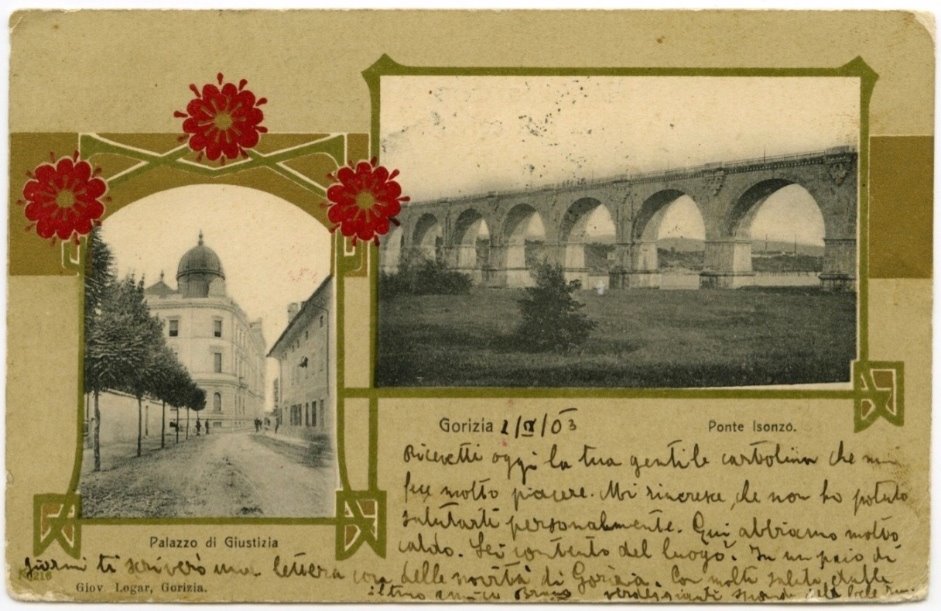 Gorizia 2/IX/03
Ponte Isonzo.
Ricevetti oggi la tua gentile cartolina che mi
fece molto piacere. Mi rincresce che non ho potuto
salutarti personalmente. Qui abbiamo molto
caldo. Sei contento del luogo? In un paio di
Palazzo di Giustizia
giorni ti scriverò una lettera con delle novità di Gorizia. Con molti saluti
Giov. Logar, Gorizia.
tuo amico Bruno verdeggianti sponde